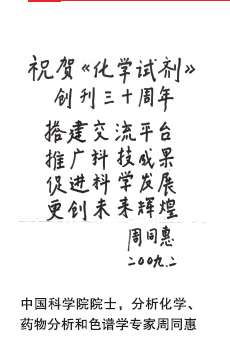 祝贺《化学试剂》
创刊三十周年
搭建交流平台
推广科技成果
促进科学发展
更创未来辉煌
周同惠
二〇〇九.二
中国科学院院士，分析化学、
药物分析和色谱学专家周同惠